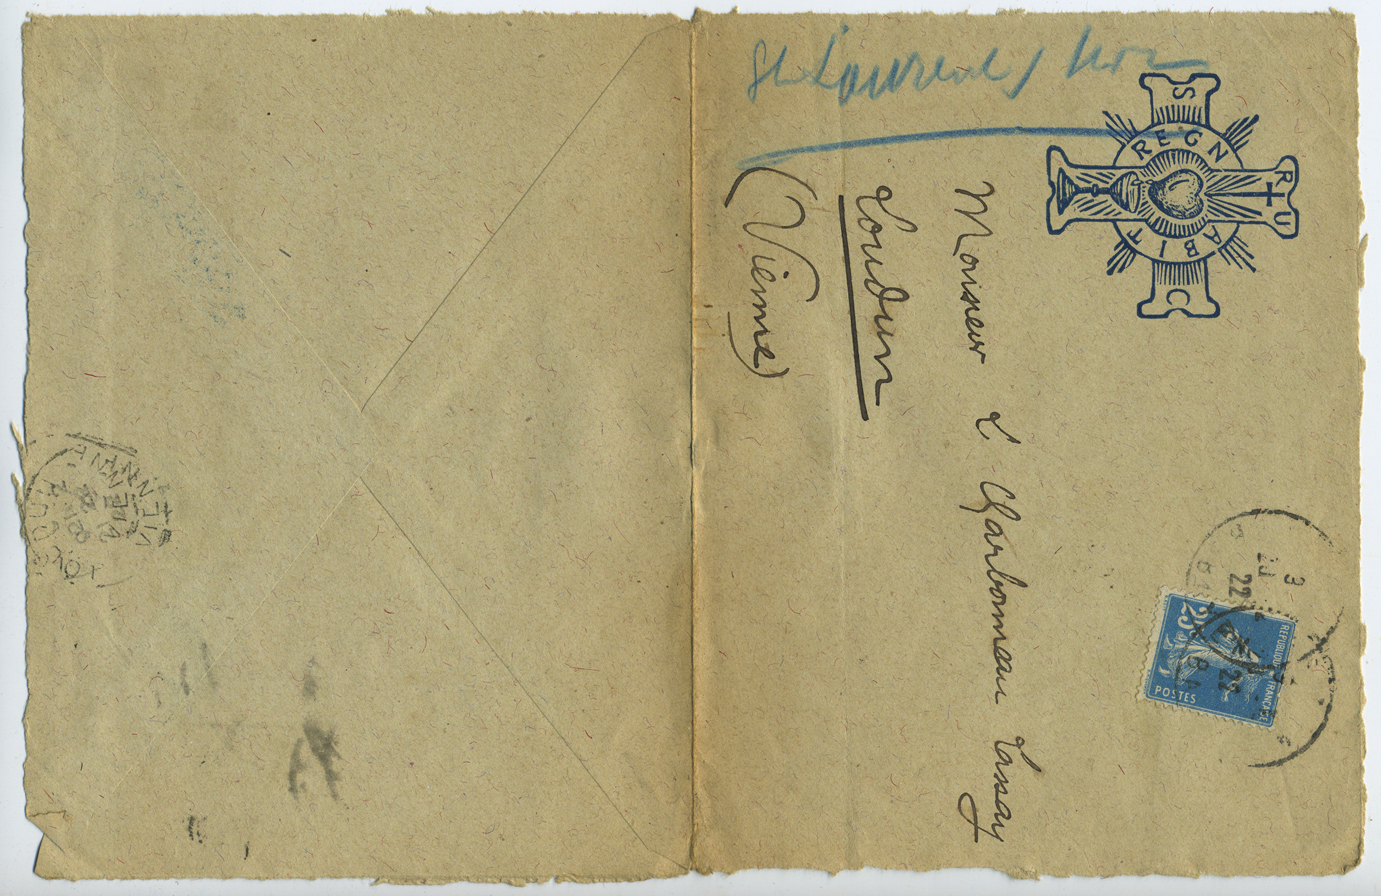 St Laurent s/
S C
REGNABIT
R U
Monsieur L Charbonneau Lassay
Loudun
(Vienne)
REPUBLIQUE FRANÇAISE
25
POSTES
3
22
VIENNE